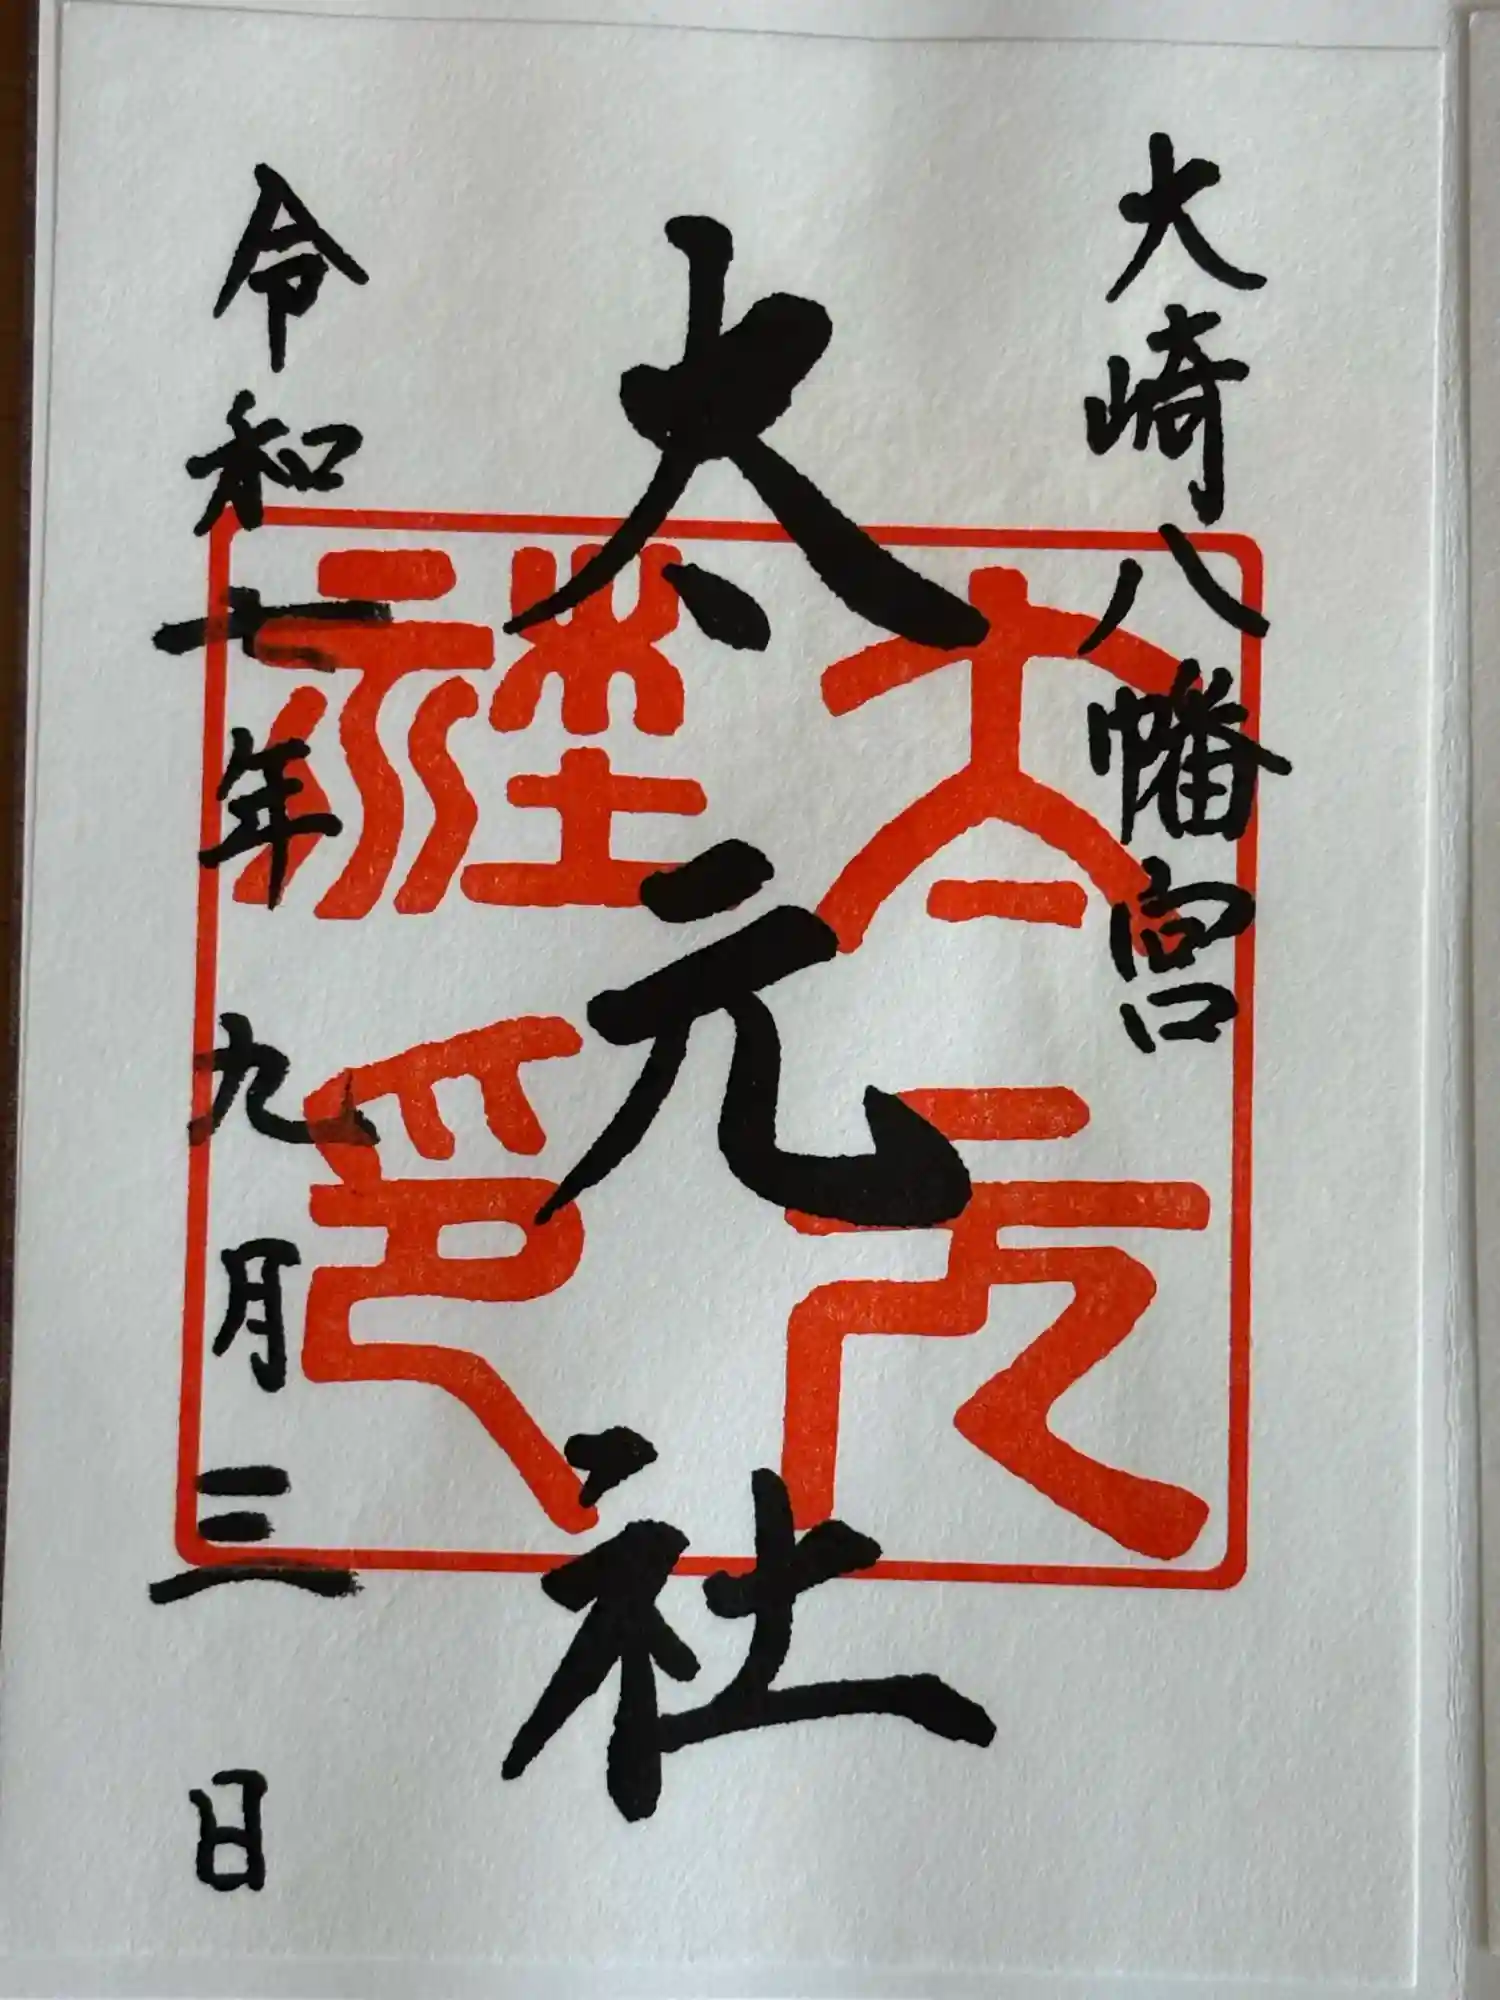 大崎八幡宮
太元社
令和七年九月三日
太元社印